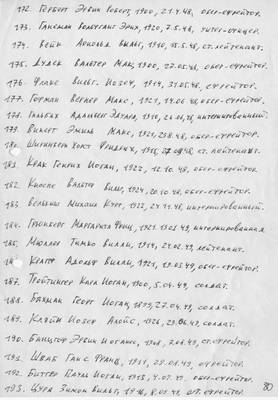 172. Герберт Эрвин Роберт, 1900, 21.4.48, обер-ефрейтор.
173. Ганеман Вольфганг Эрих, 1920, 7.5.48, унтер-офицер.
174. Вейк Арнольд Вильг., 1910, 15.5.48, ст. лейтенант.
175. Дудек Вальтер Макс, 1900, 27.05.48, обер-ефрейтор.
176. Флакс Вильг. Иозеф, 1914, 31.05.48, ефрейтор.
177. Горман Вернер Макс, 1921, 14.06.48, обер-ефрейтор.
178. Гильбах Адальберт Эдуард, 1910, 26.06.48, интернированный.
179. Викерт Эмиль Макс, 1921, 29.8.48, обер-ефрейтор.
180. Шигинберг Хорст Фридрих, 1915, 27.09.48, ст. лейтенант.
181. Крал Генрих Иоган, 1922, 12.10.48, обер-ефрейтор.
182. Киосле Вальтер Виль., 1924, 20.10.48, обер-ефрейтор.
183. Вельниц Михаил Курт, 1922, 24.11.48, интернированный.
184. Грюнберг Маргарита Фриц, 1921, 13.01.49, интернированная
185. Мюллер Тимко Вилли, 1914, 24.02.49, лейтенант.
186. Келлер Адольф Вилли, 1921, 19.03.49, обер-ефрейтор.
187. Пройтингер Карл Иоган, 1900, 5.04.49, солдат.
188. Бахман Георг Иоган, 1899, 27.04.49, солдат.
189. Клати Иозеф Алойс, 1926, 29.06.49, солдат.
190. Банцтор Эрвин Иоганес, 1908, 7.08.49, ст. ефрейтор.
191. Шваб Ганс Франц, 1911, 28.08.49, ефрейтор.
192. Биттер Пауль Иоган, 1913, 4.09.49, обер-ефрейтор.
193. Цура Зимон Вильг., 1918, 8.09.49, об. ефрейтор.
80